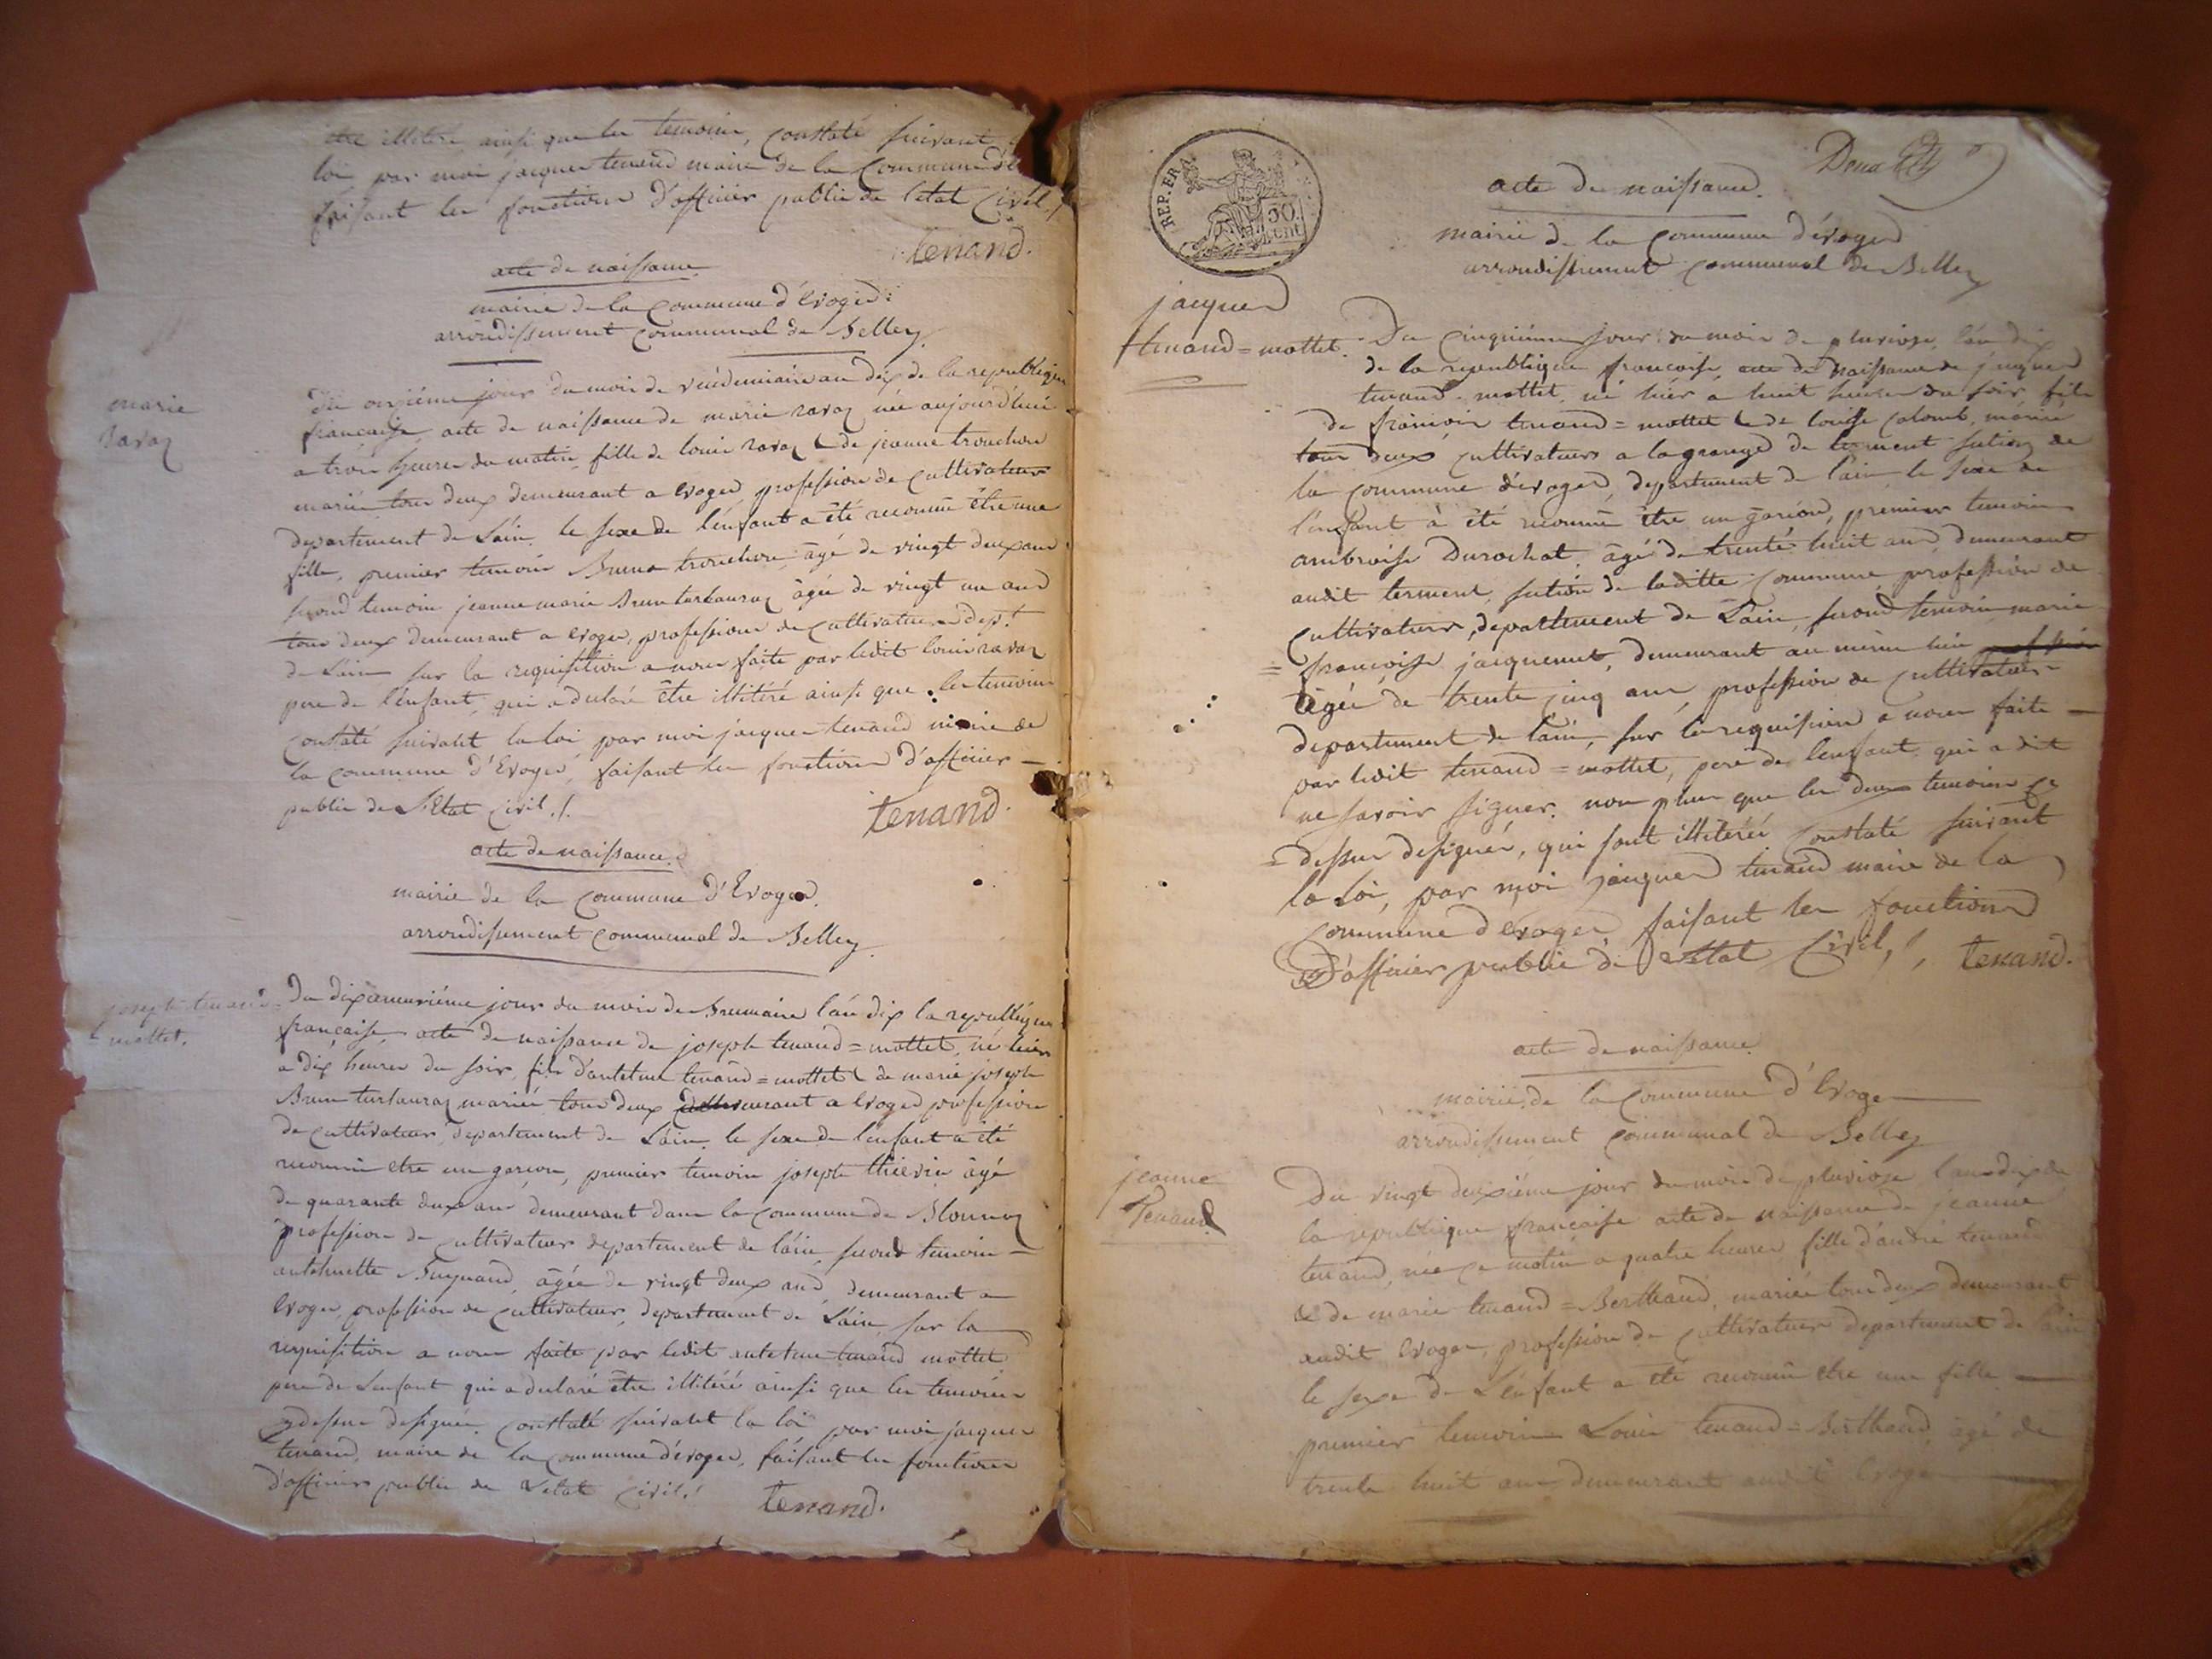 être illitéré ainsi que les temoins, constaté suivant la
loi par moi jacques tenand maire de la Commune d'E
faisant les fonctions d'officier public de l'etat Civil./.
tenand.
acte de naissance
mairie de la Commune d'Evoges
arrondissement Communal de Belley
marie
ravaz
du onziéme jour du mois de vendemiaire an dix de la republique
française, acte de naissance de marie ravaz née aujourd'hui
a trois heures du matin, fille de louis ravaz & de jeanne trouchon
mariés tous deux demeurant a Evoges, profession de Cultivateurs
departement de L'ain. le sexe de l'enfant a été reconnu être une
fille, premier temoin trouchon âgé de vingt deux ans
second temoin jeanne marie Brun tarlauraz âgée de vingt un ans
tous deux demeurant a Evoges, profession de Cultivateurs dept.
de L'ain sur la requisition a nous faite par ledit louis ravaz
pere de l'enfant, qui a declaré être illitéré ainsi que les temoins
Constaté suivant la loi par moi jacques tenand maire de
la Commune d'Evoges, faisant les fonctions d'officier
public de L'Etat Civil./.
tenand.
acte de naissance
mairie de la Commune d'Evoges.
arrondissement Communal de Belley
joseph tenand
= mottet.
du dixneuviéme jour du mois de Brumaire l'an dix la republique
française acte de naissance de joseph tenand=mottet, né hier
a dix heures du soir, fils d'antelme tenand=mottet & de marie joseph
Brun tarlauraz mariés tous deux demeurant a Evoges profession
de Cultivateurs, departement de L'ain. le sexe de l'enfant a été
reconnu etre un garçon, premier temoin joseph thievin âgé
de quarante deux ans demeurant dans la Commune de
profession de Cultivateur departement de l'ain, second temoin
anthelmette âgée de vingt deux ans, demeurant a
Evoges, profession de Cultivateur, departement de L'ain, sur la
requisition a nous faite par ledit antelme tenand mottet
pere de L'enfant qui a declaré être illitéré ainsi que les temoins
cydessus designés. Constaté suivant la loi par moi jacques
tenand, maire de la Commune d'évoges, faisant les fonctions
d'officier public de L'etat Civil.
tenand.
REP. FRA.
50.
cent
Deux
acte de naissance.
mairie de la Commune d'évoges
arrondissement Communal de Belley
jacques
tenand=mottet.
Du Cinquiéme jour du mois de pluviose, l'an dix
de la republique françoise, acte de Naissance de jacques
tenand-mottet, né hier a huit heures du soir, fils
de françois tenand=mottet & de louise Colomb, mariés
tous deux Cultivateurs a la grange de terment section de
la Commune d'évoges, departement de l'ain, le sexe de
l'enfant à été reconnu être un garçon, premier temoin
ambroise Durochat âgé de trente huit ans, demeurant
audit terment, section de laditte Commune profession de
Cultivateur, departement de L'ain, second temoin marie
= françoise jacquemet, demeurant au même lieu
âgée de trente cinq ans, profession de Cultivateur
departement de l'ain, sur la requisition a nous faite
par ledit tenand=mottet, pere de lenfant qui a dit
ne savoir signer. non plus que les deux temoins cy
= dessus designés, qui sont illitérés Constaté suivant
la Loi, par moi jacques tenand maire de la
Commune d'évoges faisant les fonctions
D'officier public de l'etat Civil, tenand.
acte de naissance.
mairie de la Commune d'Evoges
arrondissement Communal de Belley
jeanne
Tenand
Du vingt deuxiéme jour du mois de pluviose l'an dix de
la republique française acte de naissance de jeanne
tenand, née ce matin a quatre heures fille d'andré tenand
& de marie tenand=Berthaud, mariés tous deux demeurant
audit Evoges, profession de Cultivateurs departement de l'ain
le sexe de L'enfant a été reconnu etre une fille
premier temoin Louis tenand=Berthaud, âgé de
trente huit ans demeurant audit Evoges